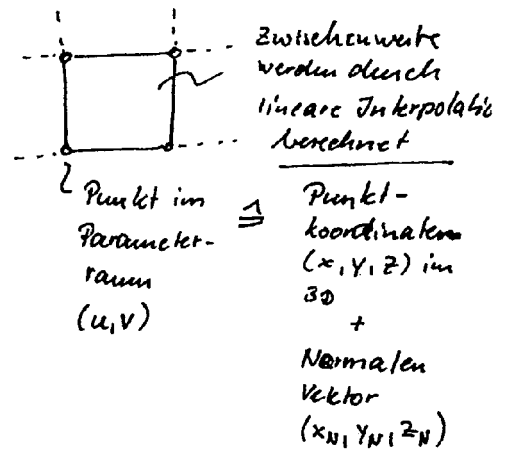 Zwischenwerte
werden durch
lineare Interpolatio
berechnet
Punkt im
Parameter-
raum
(u,v)
≙
Punkt-
koordinaten
(x,y,z) im
3D
+
Normalen
Vektor
(xN, yN, zN)